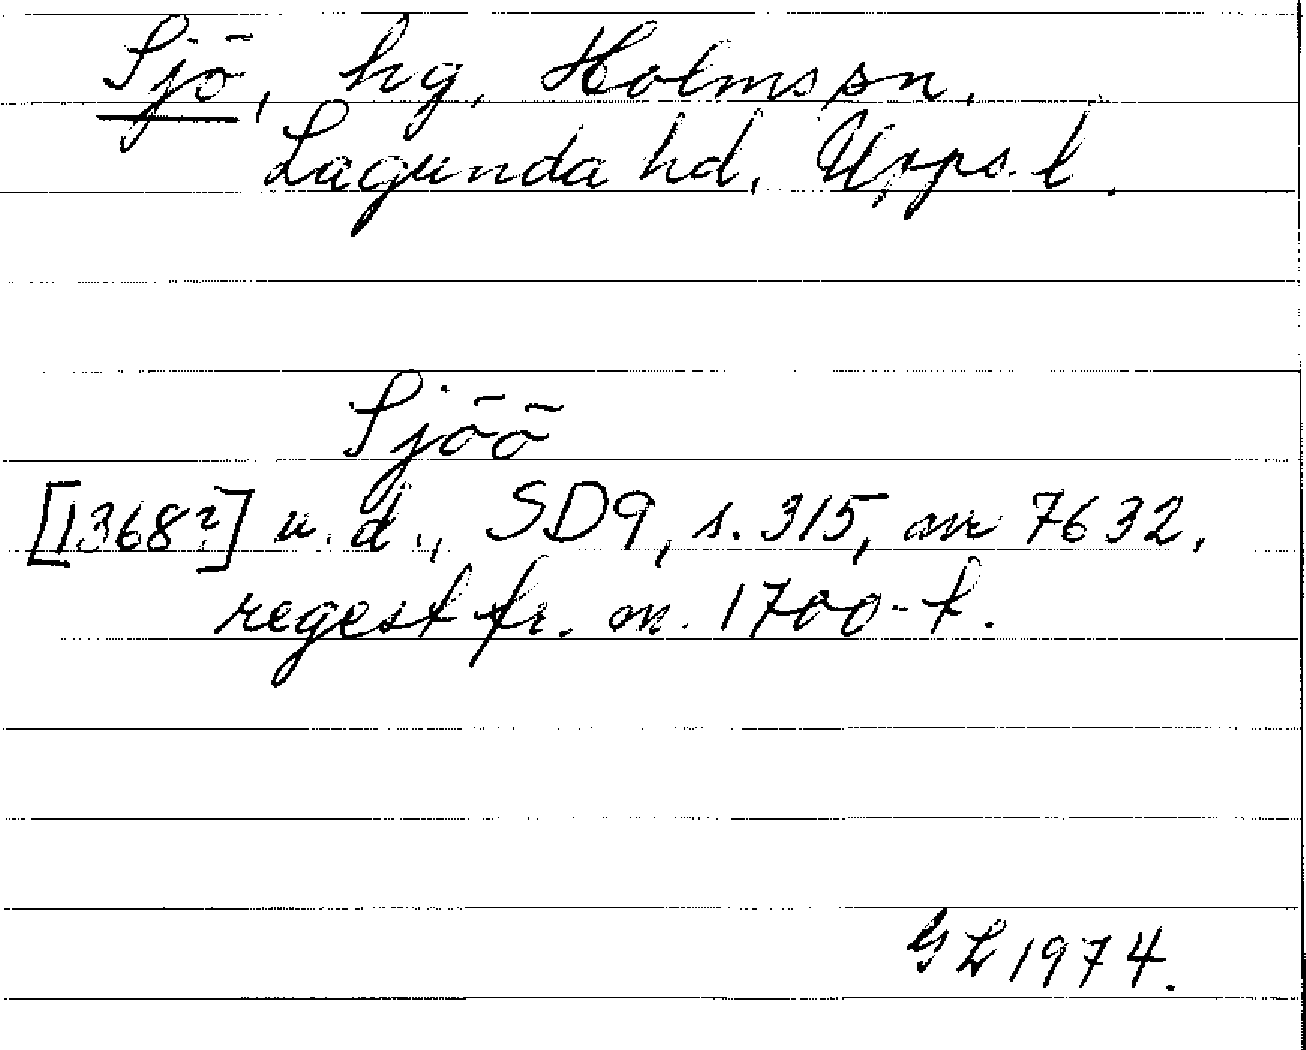 Sjö, hg, Holms sn,
Lagunda hd, Upps. l.
Sjöö
[1368?] u. d., SD9, s. 315, nr 7632,
regest fr. m. 1700-t.
GL 1974.